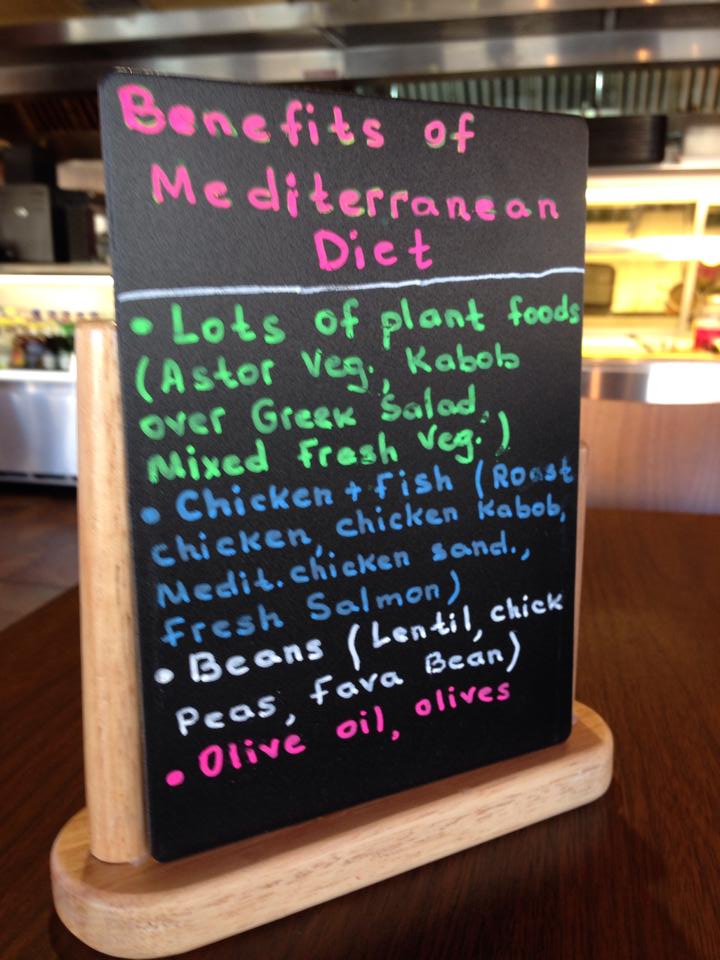 Benefits of
Mediterranean
Diet
• Lots of plant foods
(Astor Veg., Kabob
over Greek Salad,
Mixed Fresh Veg.)
• Chicken + Fish (Roast
chicken, chicken Kabob,
Medit. chicken sand.,
Fresh Salmon)
• Beans (Lentil, chick
Peas, Fava Bean)
• Olive oil, olives